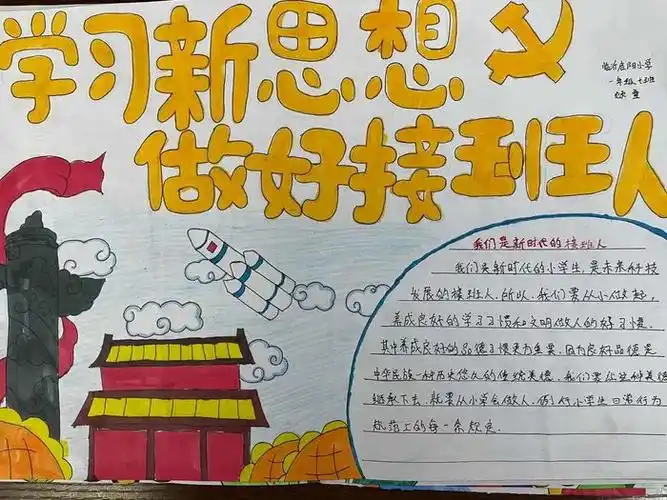 学习新思想
做好接班人
临沂启阳小学
一年级七班
我们是新时代的接班人
我们是新时代的小学生，是未来科技
发展的接班人，所以，我们要从小做起，
养成良好的学习习惯和文明做人的好习惯.
其中养成良好的品德习惯更为重要，因为良好品德是
中华民族一种历史悠久的传统美德，我们要把这种美德
继承下去，就要从小学会做人，做好小学生日常行为
规范上的每一条规定.